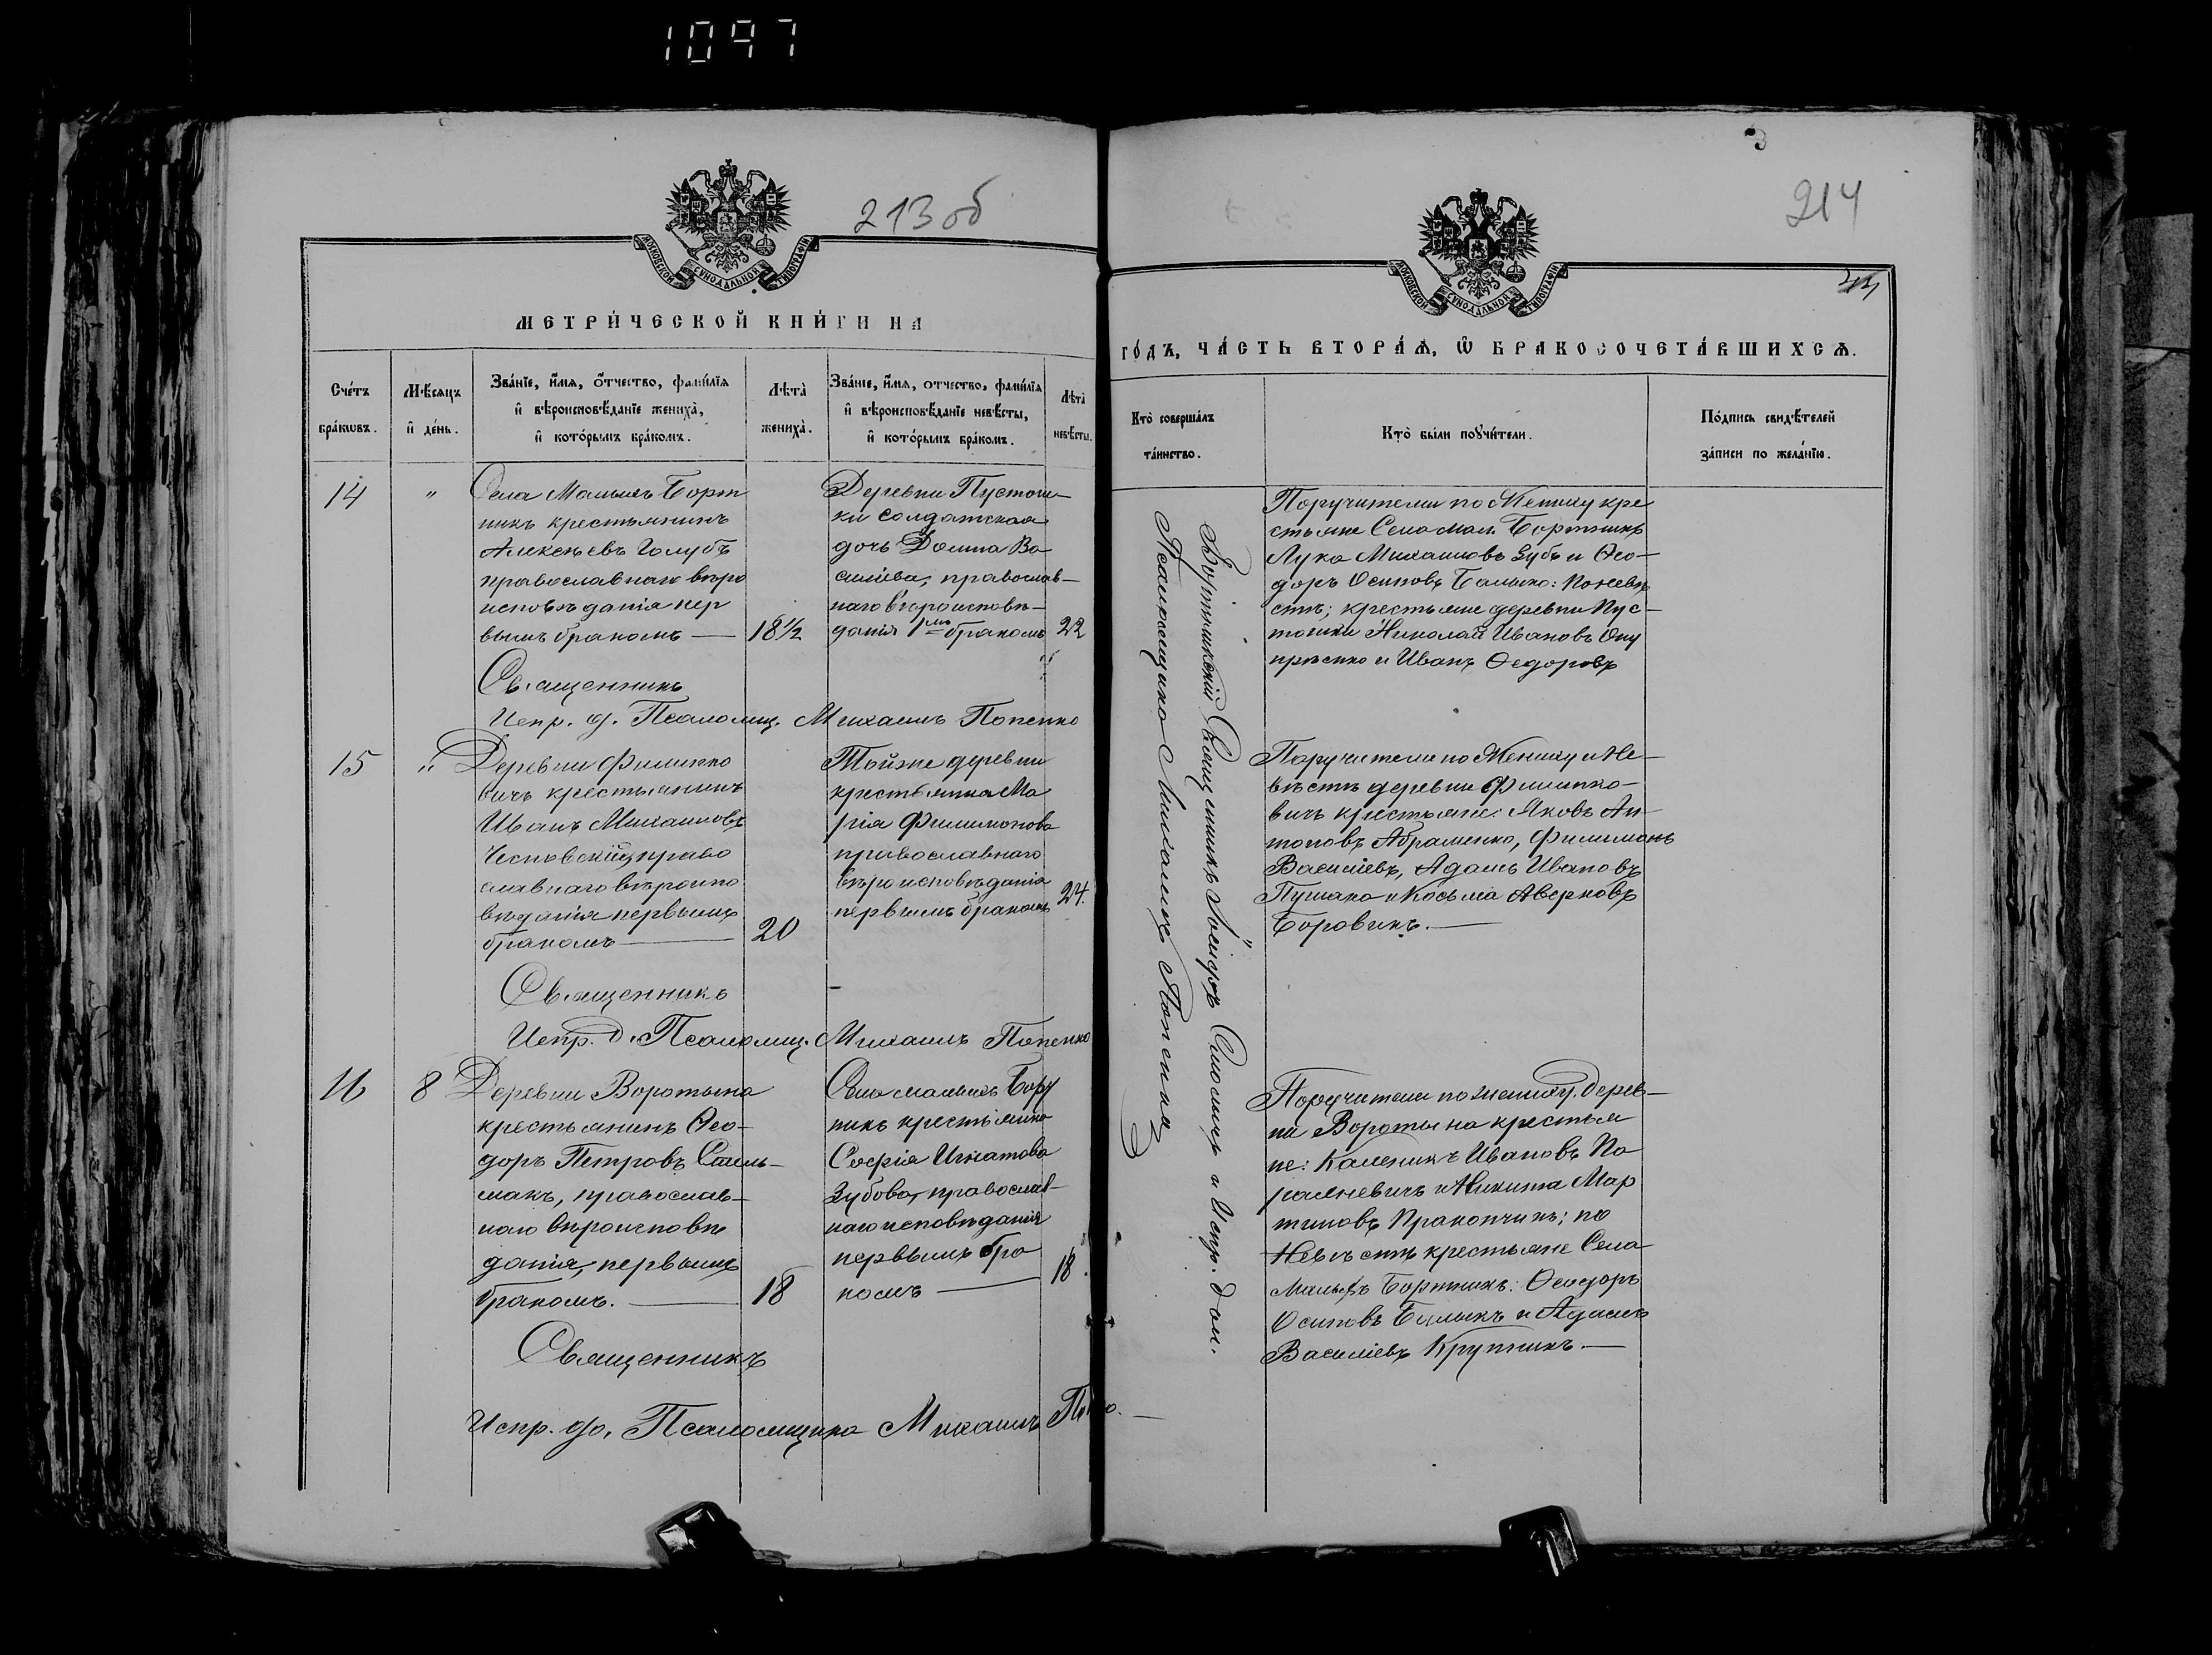 1097
213 об
МОСКОВСКОЙ СѴНОДАЛЬНОЙ ТИПОГРАФІИ
МЕТРИ́ЧЕСКОЙ КНИ́ГИ НА
Сче́тъ бра́кѡвъ.
Мѣ́сяцъ и҆ де́нь.
Зва́нїе, и҆́мѧ, ѻ҆́тчество, фами́лїѧ
и҆ вѣроисповѣ́данїе жениха̀,
и҆ кото́рымъ бра́комъ.
Лѣта̀ жениха̀.
Зва́нїе, и҆́мѧ, отчество, фами́лїѧ
и҆ вѣроисповѣ́данїе невѣ́сты,
и҆ кото́рымъ бра́комъ.
Лѣта̀ невѣ́сты.
14
"
Села Малыхъ Борт
никъ крестьянинъ
Алексѣевъ Голубъ
православнаго вѣро
исповѣданія пер
вымъ бракомъ —
18½
Деревни Пустош-
ки солдатская
дочь Домна Ва
силіева, православ-
наго вѣроисповѣ-
данія 1мъ бракомъ
22
Священникъ
Испр. д. Псаломщ. Михаилъ Попенко
15
"
Деревни Филиппо
вичъ крестьянинъ
Иванъ Михаиловъ
право
славнаго вѣроиспо
вѣданія первымъ
бракомъ —
20
Тойже деревни
крестьянка Ма
рія Филимонова
православнаго
вѣроисповѣданія
первымъ бракомъ
24.
Священникъ
Испр. д. Псаломщ. Михаилъ Попенко
16
8
Деревни Воротына
крестьянинъ Ѳео-
доръ Петровъ Стель-
махъ, православ-
наго вѣроисповѣ
данія, первымъ
бракомъ. —
18
Села малыхъ Борт
никъ крестьянка
Софія Игнатова
Зубова, православ-
наго исповѣданія
первымъ бра
комъ —
18.
Священникъ
Испр. до. Псаломщика Михаилъ
214
МОСКОВСКОЙ СѴНОДАЛЬНОЙ ТИПОГРАФІИ
ГО́ДЪ, ЧА́СТЬ ВТОРА́Ѧ, Ѽ БРАКОСОЧЕТА́ВШИХСѦ.
Кто̀ соверша́лъ та́инство.
Кто̀ были поꙋчи́тели.
По́дпись свидѣ́телей за́писи по жела́нїю.
Бортникскій Священникъ Іосифъ и Испр. дол.
Псаломщика Михаилъ Попенко
Поручители по Жениху кре
стьяне Села мал. Бортникъ
Лука Михаиловъ Зубъ и Ѳео-
доръ Осиповъ : по невѣ
стѣ; крестьяне деревни Пус-
тошки Николай Ивановъ Ону
пріенко и Иванъ Ѳедоровъ
Поручители по Жениху и Не-
вѣстѣ деревни Филиппо-
вичъ крестьяне: Яковъ Ан-
тоновъ Абраменко, Филимонъ
Василіевъ, Адамъ Ивановъ
и Косьма Аверковъ
Боровикъ. —
Поручители по жениху: Дерев-
ни Воротына крестья
не: Каленикъ Ивановъ Па
и Никита Мар
тиновъ Пракопчикъ; по
Невѣстѣ крестьяне Села
Малыхъ Бортникъ: Ѳеодоръ
Осиповъ и Адамъ
Василіевъ Крупникъ. —